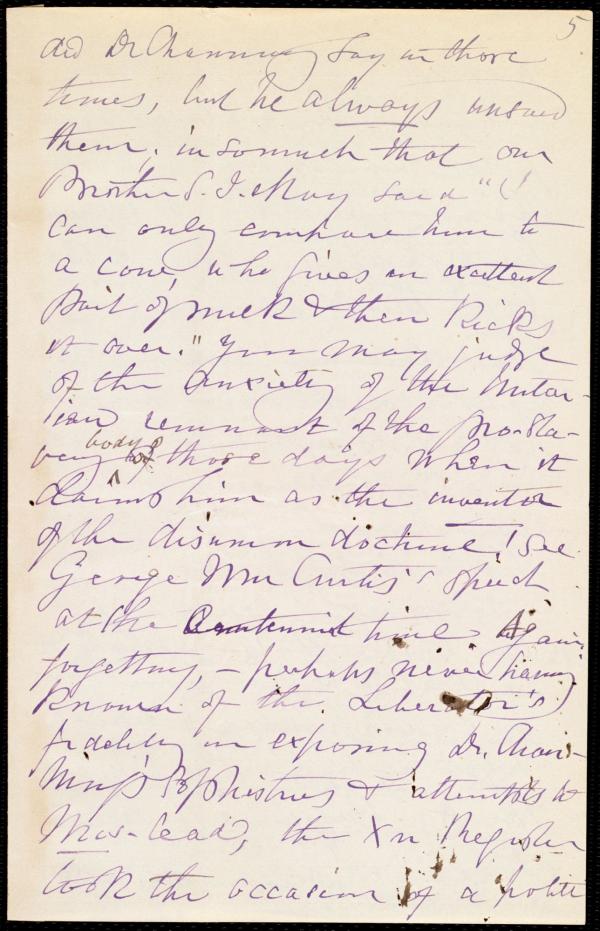 5
did Dr Channing say in those
times, but he always unsaid
them; insomuch that our
Brother S. J. May said "I
can only compare him to
a cow, who gives an excellent
pail of milk & then kicks
it over." You may judge
of the anxiety of the Unitar-
ian remnant of the pro-sla-
very body of those days when it
claims him as the inventor
of the disunion doctrine! See
George Wm Curtis's speech
at the Centennial time. Again,
forgetting, – perhaps never having
known of the Liberator's
fidelity in exposing Dr. Chan-
ning's Sophistries & attempts to
Mis-lead, the Xn Register
took the occasion of a polite